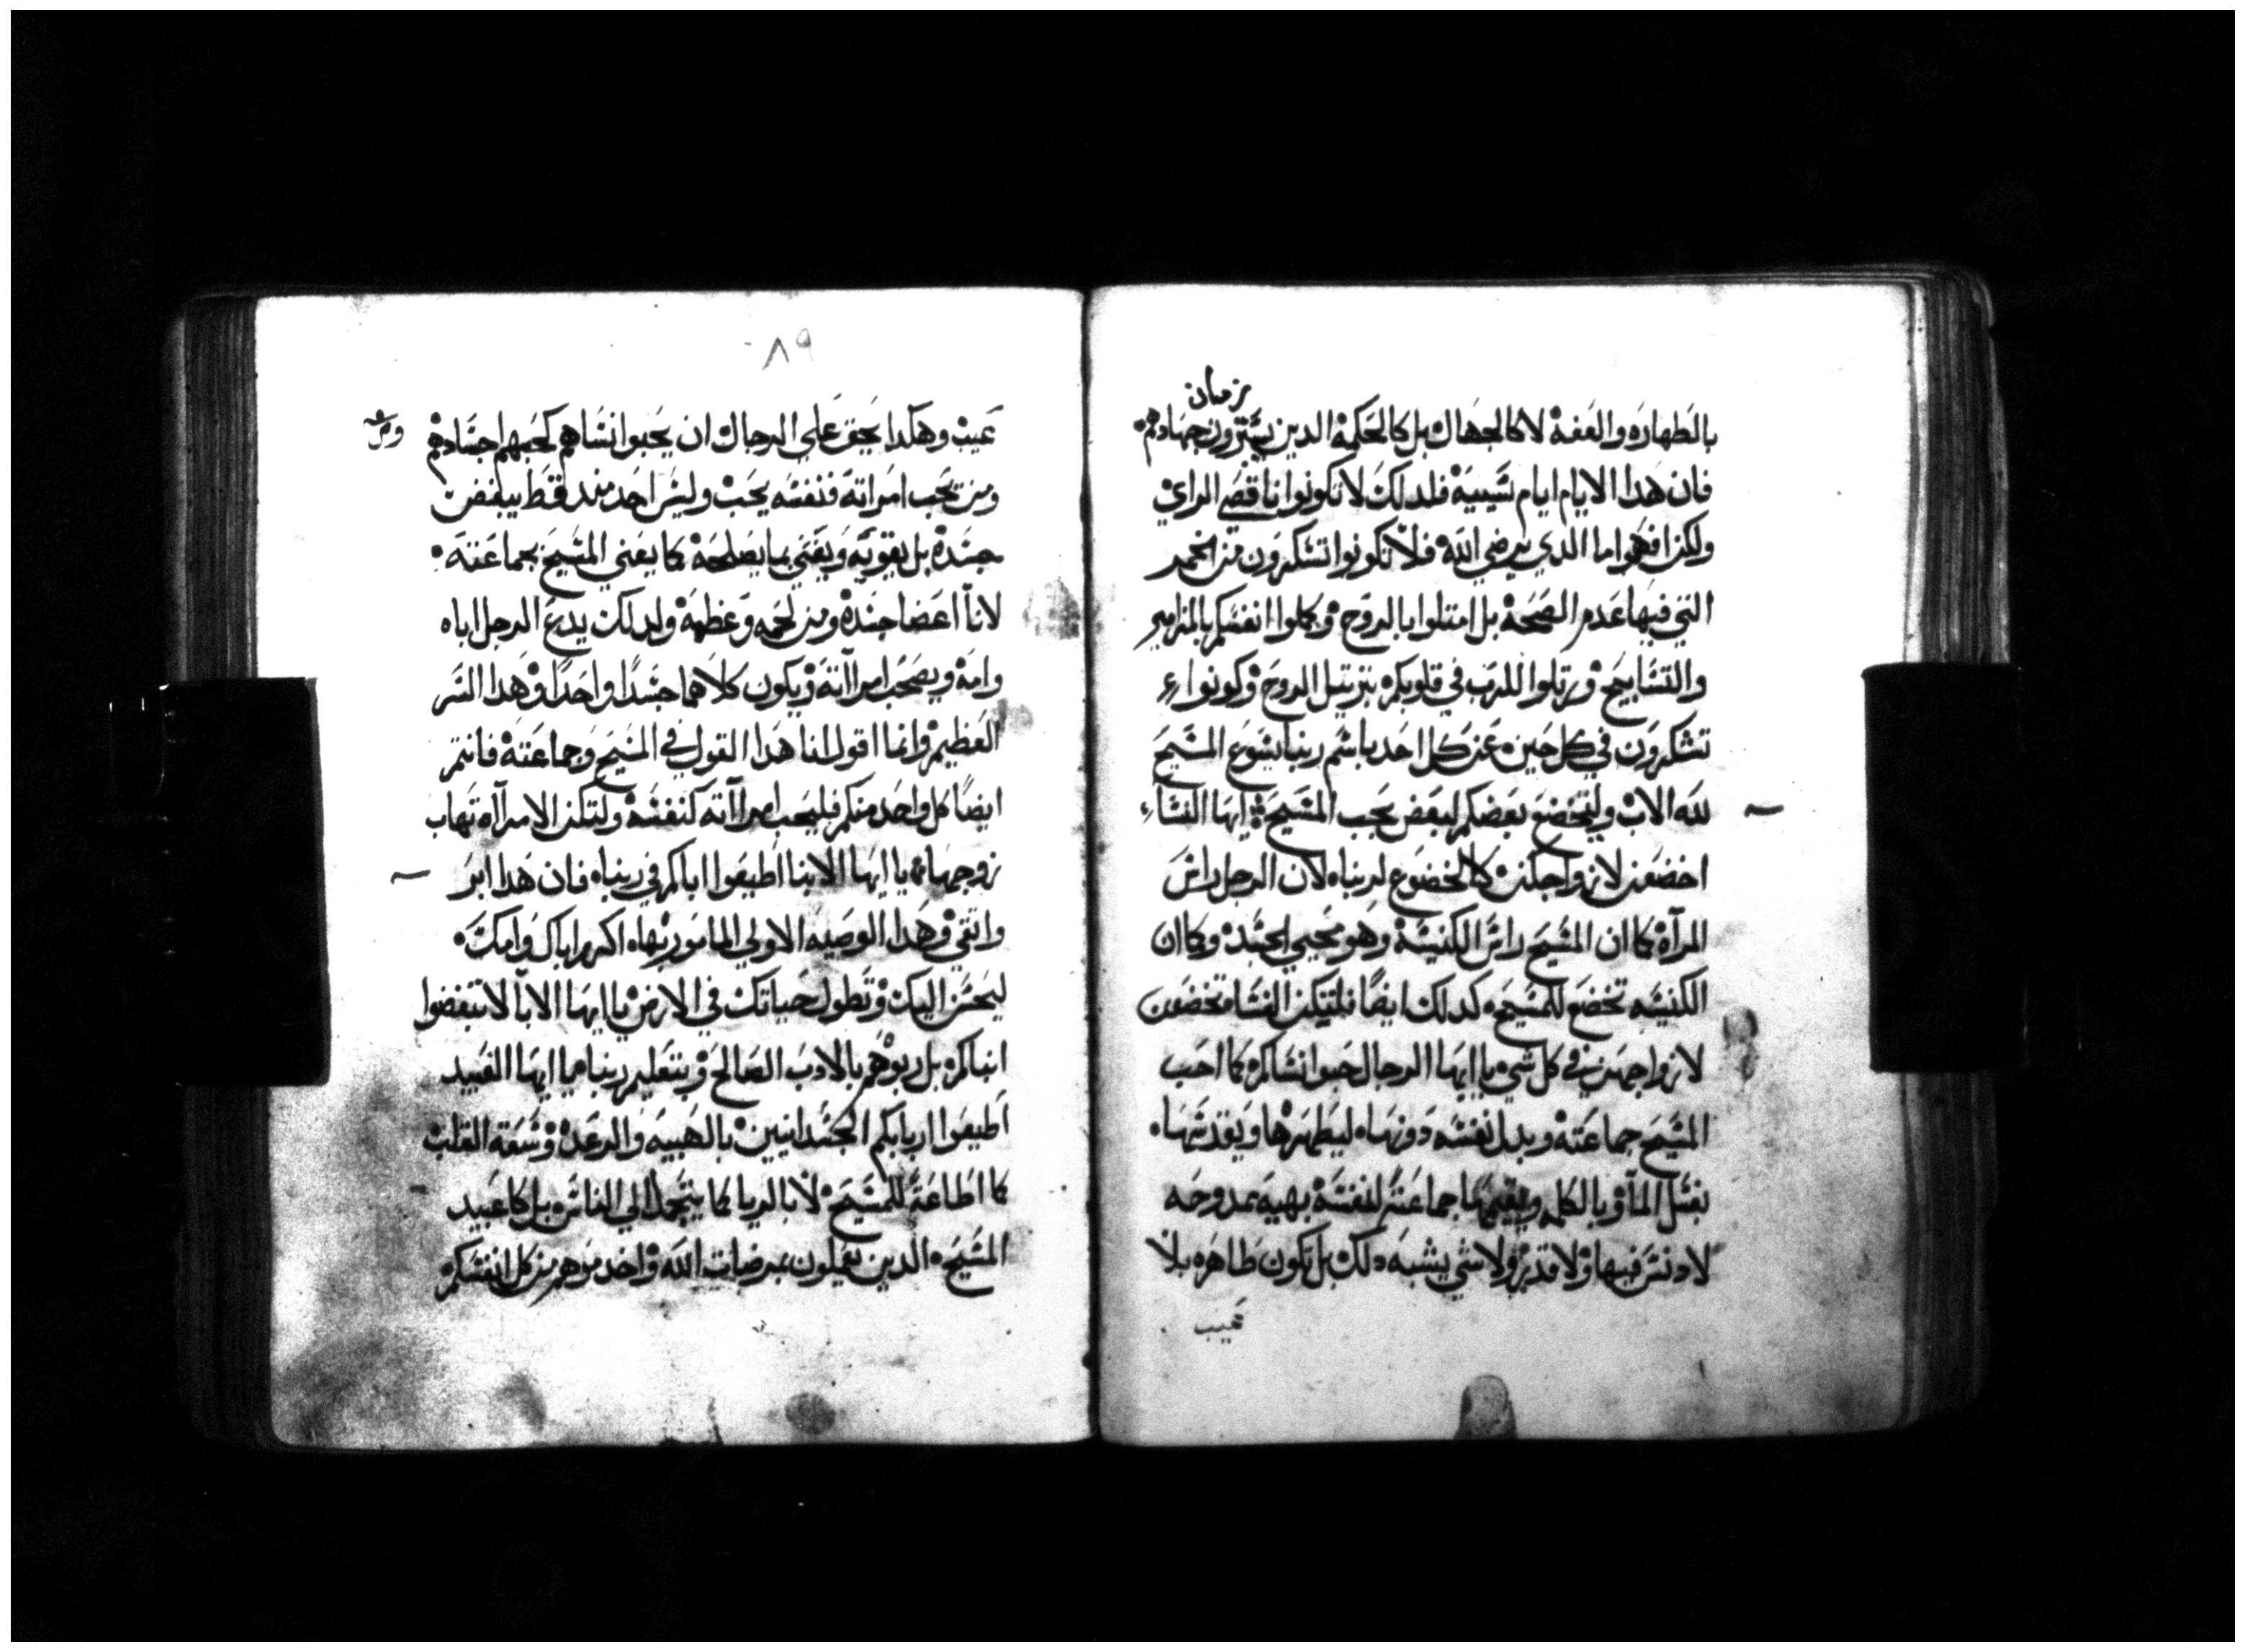 زمان
بالطهاره والعفة لا كالجهال بل كالحكمة الدين يشترون جهادهم
فان هدا الايام ايام شييية فلدلك لا تكونوا ناقصي الراي
ولكن افهموا ما الدي يرضي الله فلا تكونوا تشكرون من الخمر
التي فيها عدم الصحة بل امتلوا بالروح وكلوا انفسكم بالمزامير
والتسابيح ورتلوا للرب في قلوبكم بترتيل الروح وكونوا
تشكرون في كل حين عن كل احد باسم ربنا يسوع المسيح
لله الاب وليخضع بعضكم لبعض بحب المسيح ايها النساء
اخضعن لازواجكن كالخضوع لربنا لان الرجل راس
المرآة كما ان المسيح راس الكنيسة وهو محيي الجسد وكما ان
الكنيسه تخضع للمسيح كدلك ايضًا فلتكن النسا تخضعن
لازواجهن في كل شي يا ايها الرجال حبوا نساكم كما احب
المسيح جماعته وبدل نفسه دونها ليطهرها ويقدسها
بغسل المآ وبالكلمه ويقيمها جماعته لنفسه بهية ممدوحه
لا دنس فيها ولا قدر ولا شي يشبه دلك بل تكون طاهره بلا
عيب
٨٩
عيب وهكدا يحق علي الرجال ان يحبوا نساهم كحبهم اجسادهم
ومن يحب امراته فنفسه يحب وليس احد مند قط يبغض
جسده بل يقويه ويعني بما يصلحة كما يعني المسيح بجماعته
لانا اعضا جسده ومن لحمه وعظمه ولدلك يدع الرجل اباه
وامه ويصحب امراآته ويكون كلاهما جسدًا واحدًا وهدا السر
العظيم وانما اقول انا هدا القول في المسيح وجماعته فانتم
ايضًا كل واحد منكم فليحب امراآته كنفسه ولتكن الامرآه تهاب
زوجها يا ايها الابنا اطيعوا اباكم في ربنا فان هدا ابر
واتقي وهدا الوصيه الاولي المامور بها اكرم اباك وامك
ليحسن اليك وتطول حياتك في الارض يا ايها الابآ لا تبغضوا
ابناكم بل ربوهم بالادب الصالح وبتعليم ربنا يا ايها العبيد
اطيعوا اربابكم الجسدانيين بالهيبه والرعدة وسعة القلب
كما اطاعة للمسيح لا بالريا كما يتجمل الي الناس بل كاعبيد
المسيح الدين يعملون بمرضات الله واخدموهم من كل انفسكم